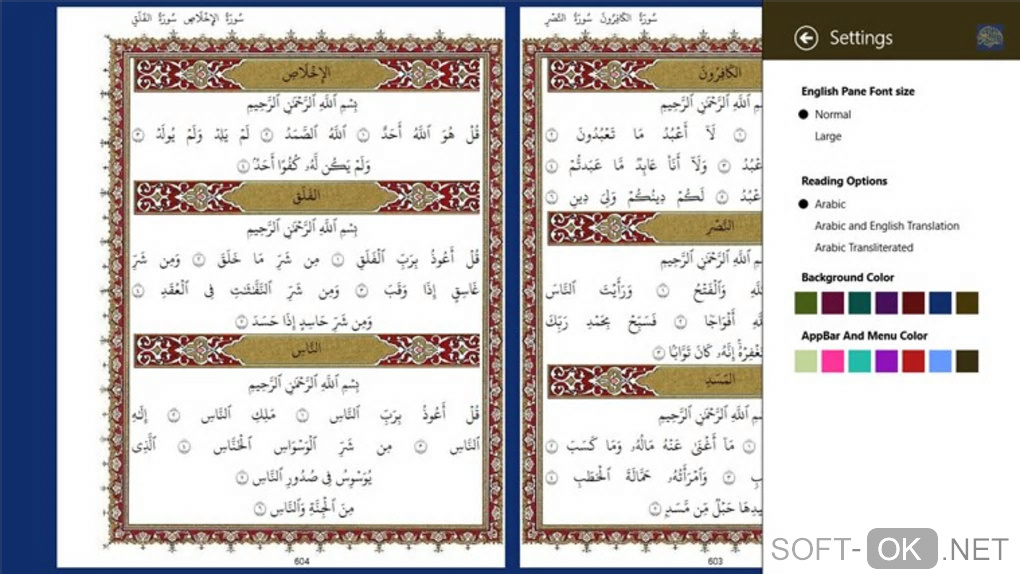 سُورَةُ الإِخْلَاصِ سُورَةُ الفَلَقِ
الإِخْلَاصِ
بِسْمِ ٱللَّهِ ٱلرَّحْمَٰنِ ٱلرَّحِيمِ
قُلْ هُوَ ٱللَّهُ أَحَدٌ ١ ٱللَّهُ ٱلصَّمَدُ ٢ لَمْ يَلِدْ وَلَمْ يُولَدْ ٣
وَلَمْ يَكُن لَّهُۥ كُفُوًا أَحَدٌۢ ٤
الفَلَقِ
بِسْمِ ٱللَّهِ ٱلرَّحْمَٰنِ ٱلرَّحِيمِ
قُلْ أَعُوذُ بِرَبِّ ٱلْفَلَقِ ١ مِن شَرِّ مَا خَلَقَ ٢ وَمِن شَرِّ
غَاسِقٍ إِذَا وَقَبَ ٣ وَمِن شَرِّ ٱلنَّفَّٰثَٰتِ فِى ٱلْعُقَدِ ٤
وَمِن شَرِّ حَاسِدٍ إِذَا حَسَدَ ٥
النَّاسِ
بِسْمِ ٱللَّهِ ٱلرَّحْمَٰنِ ٱلرَّحِيمِ
قُلْ أَعُوذُ بِرَبِّ ٱلنَّاسِ ١ مَلِكِ ٱلنَّاسِ ٢ إِلَٰهِ
ٱلنَّاسِ ٣ مِن شَرِّ ٱلْوَسْوَاسِ ٱلْخَنَّاسِ ٤ ٱلَّذِى
يُوَسْوِسُ فِى صُدُورِ ٱلنَّاسِ ٥
مِنَ ٱلْجِنَّةِ وَٱلنَّاسِ ٦
604
سُورَةُ الكَافِرُونَ سُورَةُ النَّصْرِ
الكَافِرُونَ
ٱللَّهِ ٱلرَّحْمَٰنِ ٱلرَّحِيمِ
١ لَآ أَعْبُدُ مَا تَعْبُدُونَ ٢
٣ وَلَآ أَنَا۠ عَابِدٌ مَّا عَبَدتُّمْ ٤
٥ لَكُمْ دِينُكُمْ وَلِىَ دِينِ ٦
النَّصْرِ
ٱللَّهِ ٱلرَّحْمَٰنِ ٱلرَّحِيمِ
وَٱلْفَتْحُ ١ وَرَأَيْتَ ٱلنَّاسَ
أَفْوَاجًا ٢ فَسَبِّحْ بِحَمْدِ رَبِّكَ
إِنَّهُۥ كَانَ تَوَّابًۢا ٣
المَسَدِ
ٱللَّهِ ٱلرَّحْمَٰنِ ٱلرَّحِيمِ
١ مَآ أَغْنَىٰ عَنْهُ مَالُهُۥ وَمَا كَسَبَ ٢
٣ وَٱمْرَأَتُهُۥ حَمَّالَةَ ٱلْحَطَبِ ٤
حَبْلٌ مِّن مَّسَدٍۭ ٥
603
Settings
English Pane Font size
Normal
Large
Reading Options
Arabic
Arabic and English Translation
Arabic Transliterated
Background Color
AppBar And Menu Color
SOFT-OK.NET